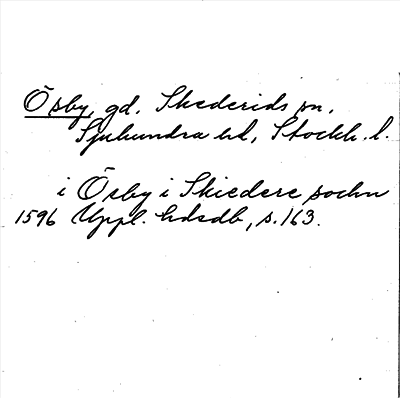 Ösby, gd. Skederids sn,
Sjuhundra hd, Stockh. l.
i Ösby i Skiedere sochn
1596 Uppl. hdsdb, s. 163.